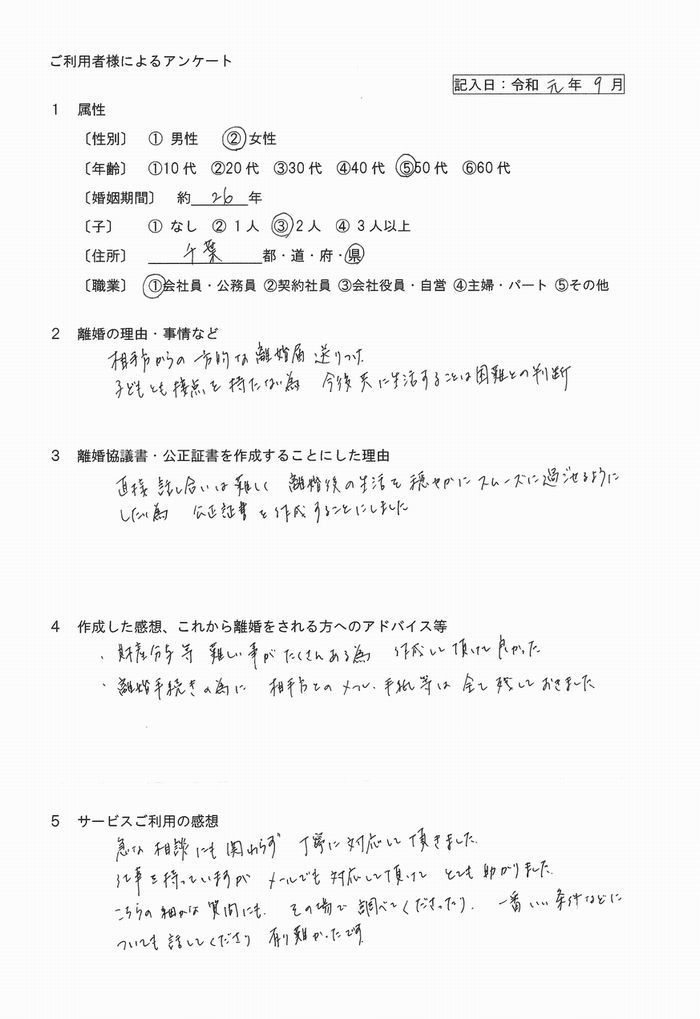 ご利用者様によるアンケート
記入日:令和 元 年 9 月
1 属性
〔性別〕 ① 男性 ② 女性
〔年齢〕 ①10代 ②20代 ③30代 ④40代 ⑤50代 ⑥60代
〔婚姻期間〕 約 26 年
〔子〕 ① なし ② 1人 ③ 2人 ④ 3人以上
〔住所〕 千葉 都・道・府・県
〔職業〕 ①会社員・公務員 ②契約社員 ③会社役員・自営 ④主婦・パート ⑤その他
2 離婚の理由・事情など
相手方からの一方的な離婚届送りつけ
子どもとも接点を持たない為 今後共に生活することは困難との判断
3 離婚協議書・公正証書を作成することにした理由
直接話し合いは難しく 離婚後の生活を穏やかにスムーズに過ごせるように
したい為 公正証書を作成することにしました
4 作成した感想、これから離婚をされる方へのアドバイス等
・財産分与等 難しい事がたくさんある為 作成して頂けて良かった
・離婚手続きの為に 相手方とのメール、手紙等は全て残しておきました
5 サービスご利用の感想
急な相談にも関わらず 丁寧に対応して頂きました。
仕事を持っていますが メールでも対応して頂けて とても助かりました。
こちらの細かな質問にも、その場で調べてくださったり、一番いい条件などに
ついても話してくださり 有り難かったです